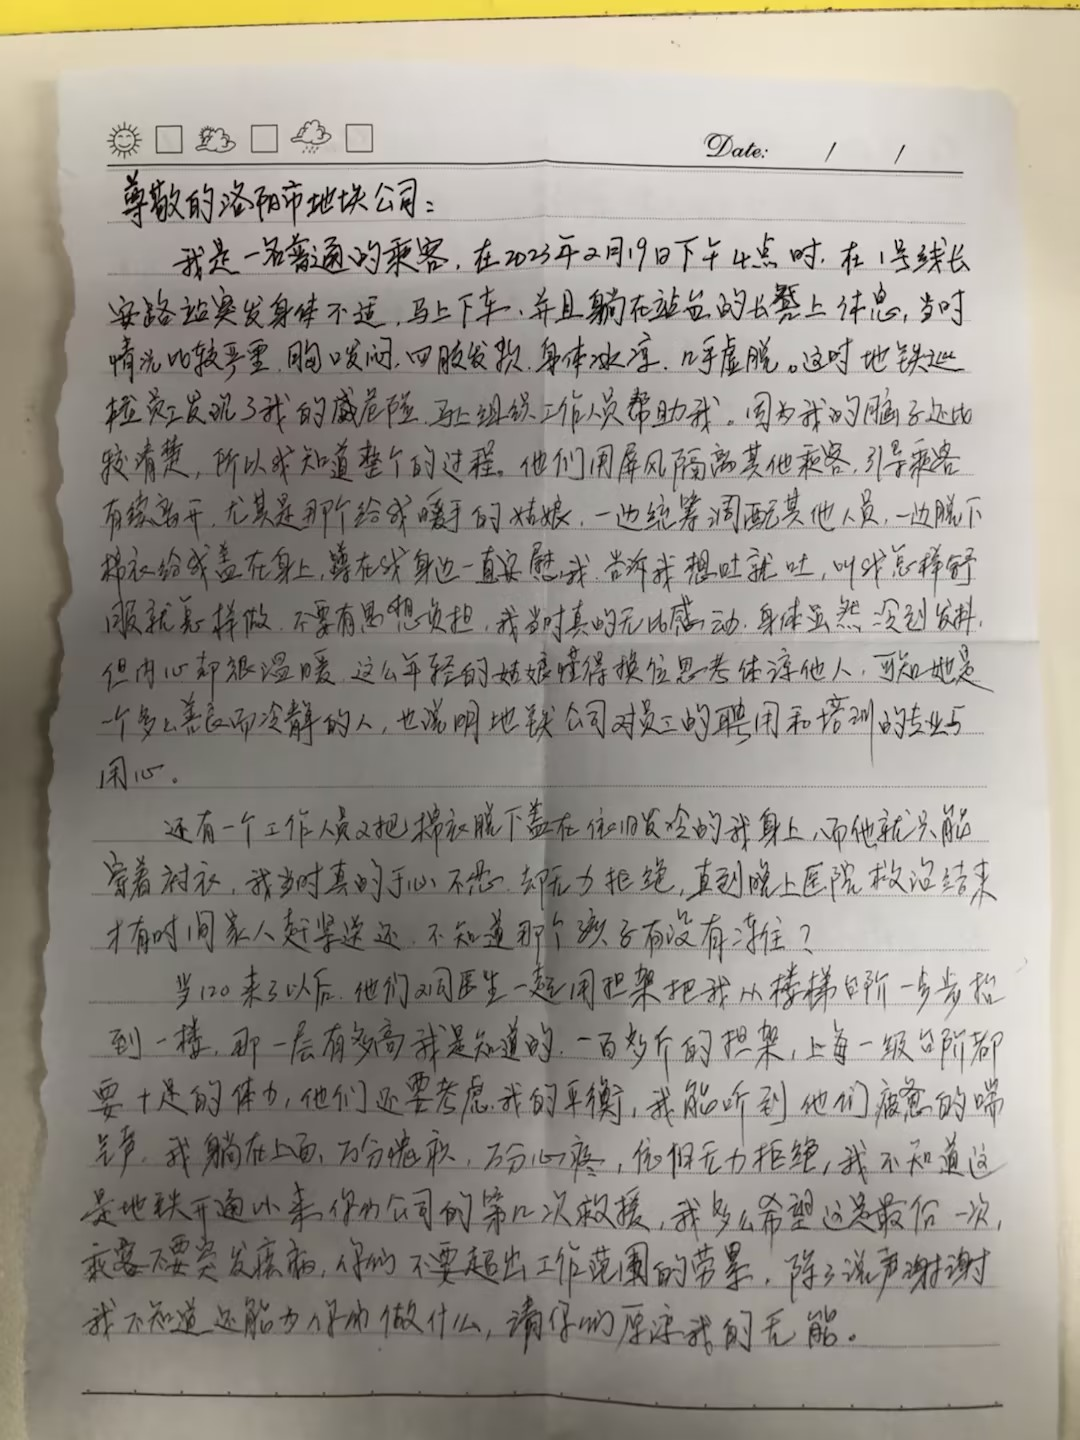 Date: / /
尊敬的洛阳市地铁公司：
我是一名普通的乘客，在2023年2月19日下午4点时，在1号线长
安路站突发身体不适，马上下车，并且躺在站台的长凳上休息，当时
情况比较严重，胸口发闷，四肢发软，身体冰凉，几乎虚脱。这时地铁巡
检员工发现了我的危险，马上组织工作人员帮助我。因为我的脑子还比
较清楚，所以我知道整个的过程。他们用屏风隔离其他乘客，引导乘客
有续离开，尤其是那个给我暖手的姑娘，一边统筹调配其他人员，一边脱下
棉衣给我盖在身上，蹲在我身边一直安慰我，告诉我想吐就吐，叫我怎样舒
服就怎样做，不要有思想负担，我当时真的无比感动，身体虽然冷到发抖，
但内心却很温暖，这么年轻的姑娘懂得换位思考体谅他人，可知她是
一个多么善良而冷静的人，也说明地铁公司对员工的聘用和培训的专业与
用心。
还有一个工作人员又把棉衣脱下盖在依旧发冷的我身上，而他就只能
穿着衬衣，我当时真的于心不忍，却无力拒绝，直到晚上医院救治结束
才有时间家人赶紧送还，不知道那个孩子有没有冻住？
当120来了以后，他们又同医生一起用担架把我从楼梯台阶一步步抬
到一楼，那一层有多高我是知道的，一百多斤的担架，上每一级台阶都
要十足的体力，他们还要考虑我的平衡，我能听到他们疲惫的喘
气声，我躺在上面，万分愧疚，万分心疼，依旧无力拒绝，我不知道这
是地铁开通以来你们公司的第几次救援，我多么希望这是最后一次，
乘客不要突发疾病，你们不要超出工作范围的劳累，除了说声谢谢
我不知道还能为你们做什么，请你们原谅我的无能。